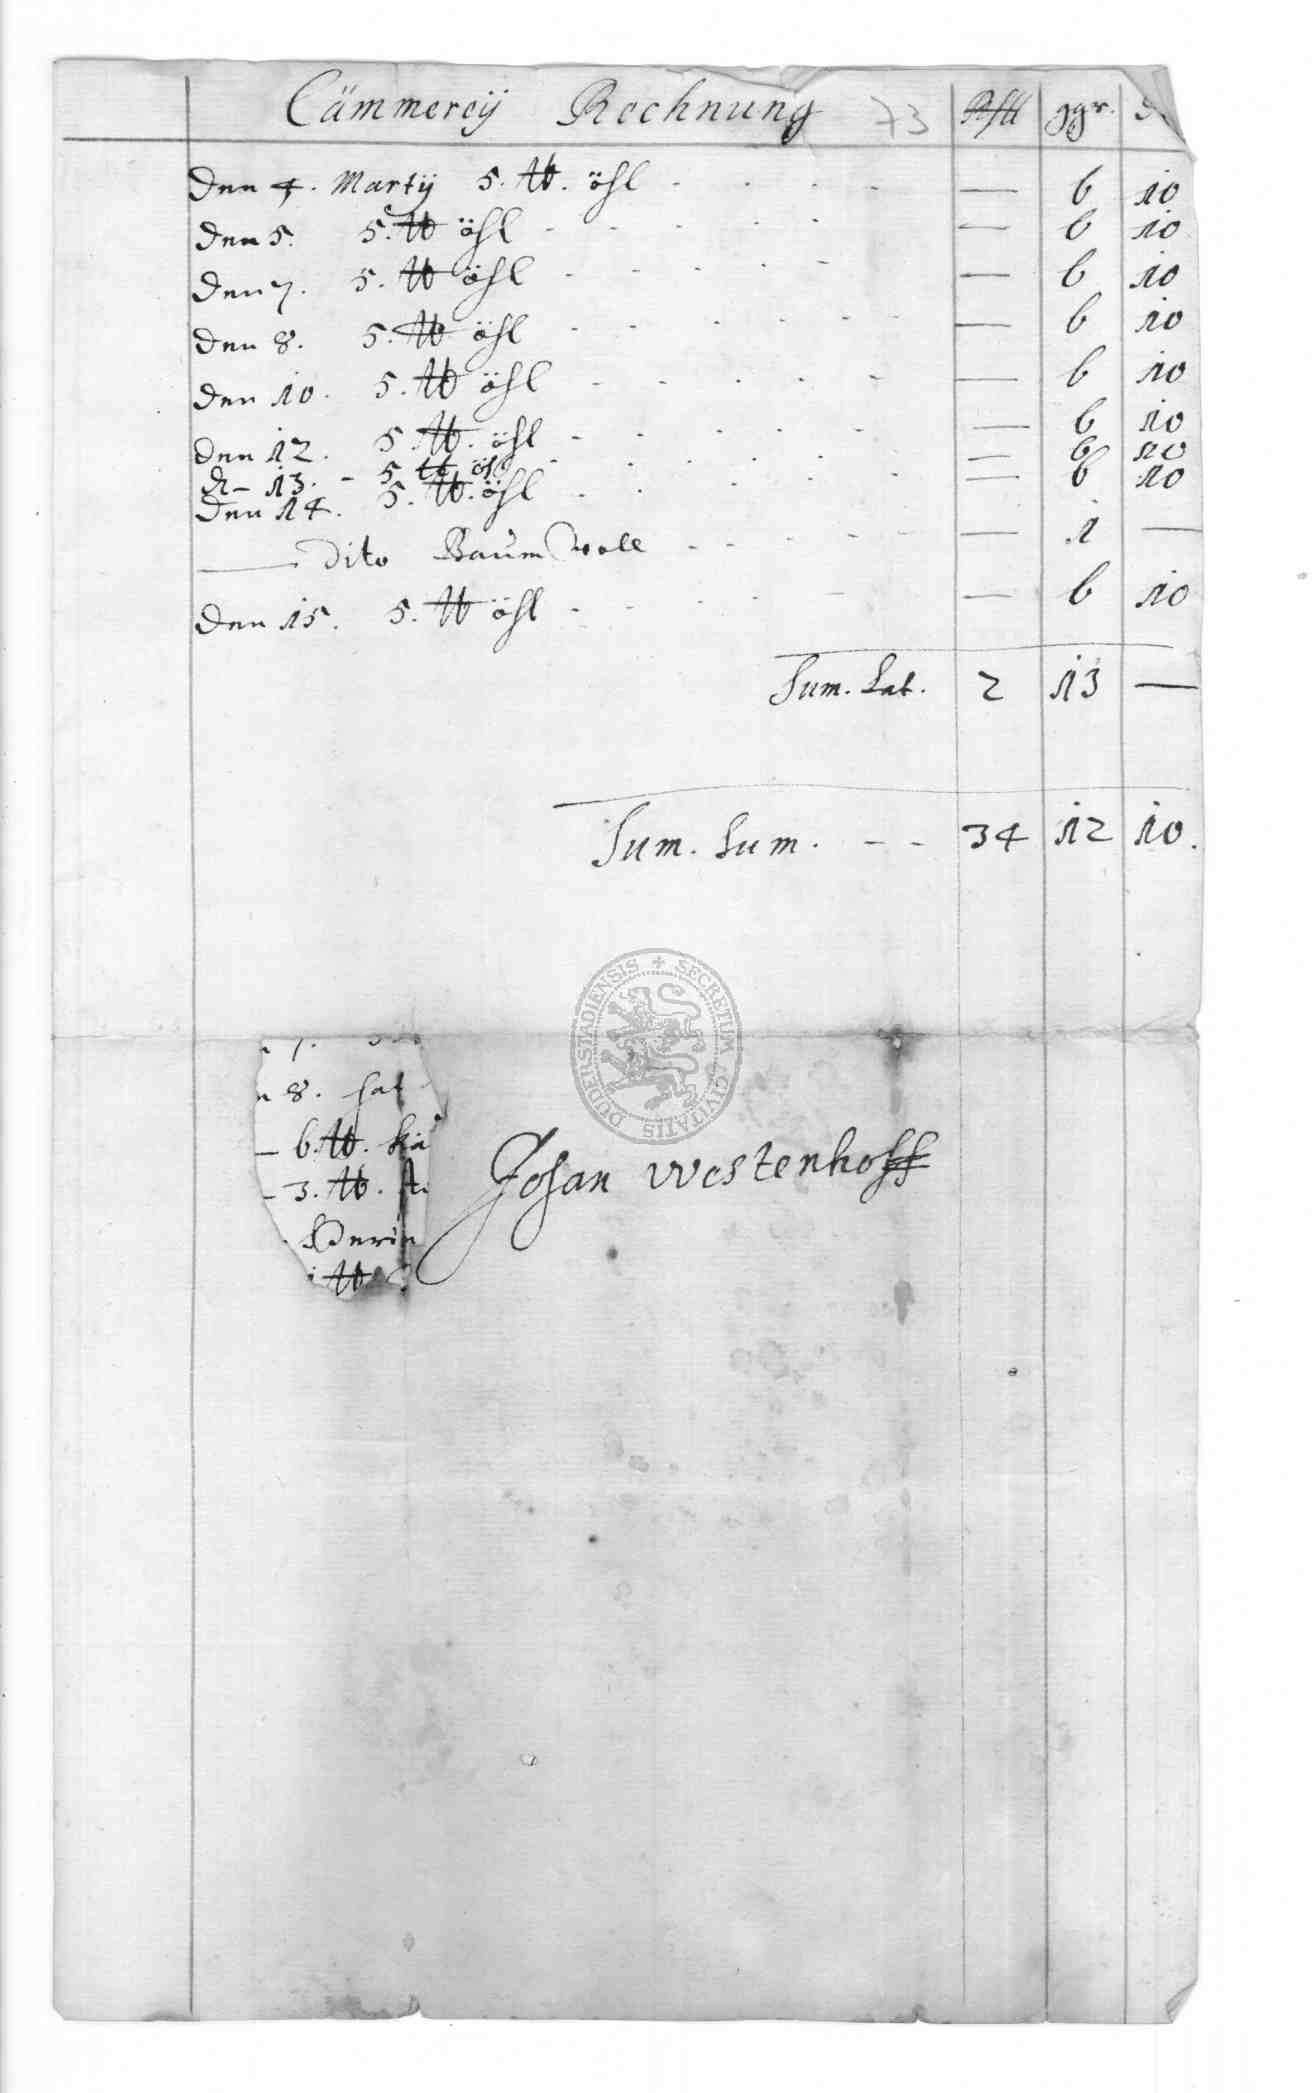 Cämmereÿ Rechnung 73 Rthl ggr. d.
den 4. Martÿ 5. ℔. öhl - - - - — 6 10
den 5. 5. ℔ öhl - - - - - — 6 10
den 7. 5. ℔ öhl - - - - - — 6 10
den 8. 5. ℔ öhl - - - - - - — 6 10
den 10. 5. ℔ öhl - - - - - — 6 10
den 12. 5. ℔. öhl - - - - - — 6 10
d - 13. - 5 ℔ öhl - - - - - — 6 10
den 14. 5. ℔. öhl - - - - - — 6 10
— dito Baumwoll - - - - - — 1 —
den 15. 5. ℔ öhl - - - - - — 6 10
Sum. Lat. 2 13 —
Sum. Sum. - - 34 12 10.
DUDERSTADIENSIS + SECRETUM CIVITATIS
n 8. hat
— 6. ℔.
– 3. ℔.
℔
Johan Westenhoff